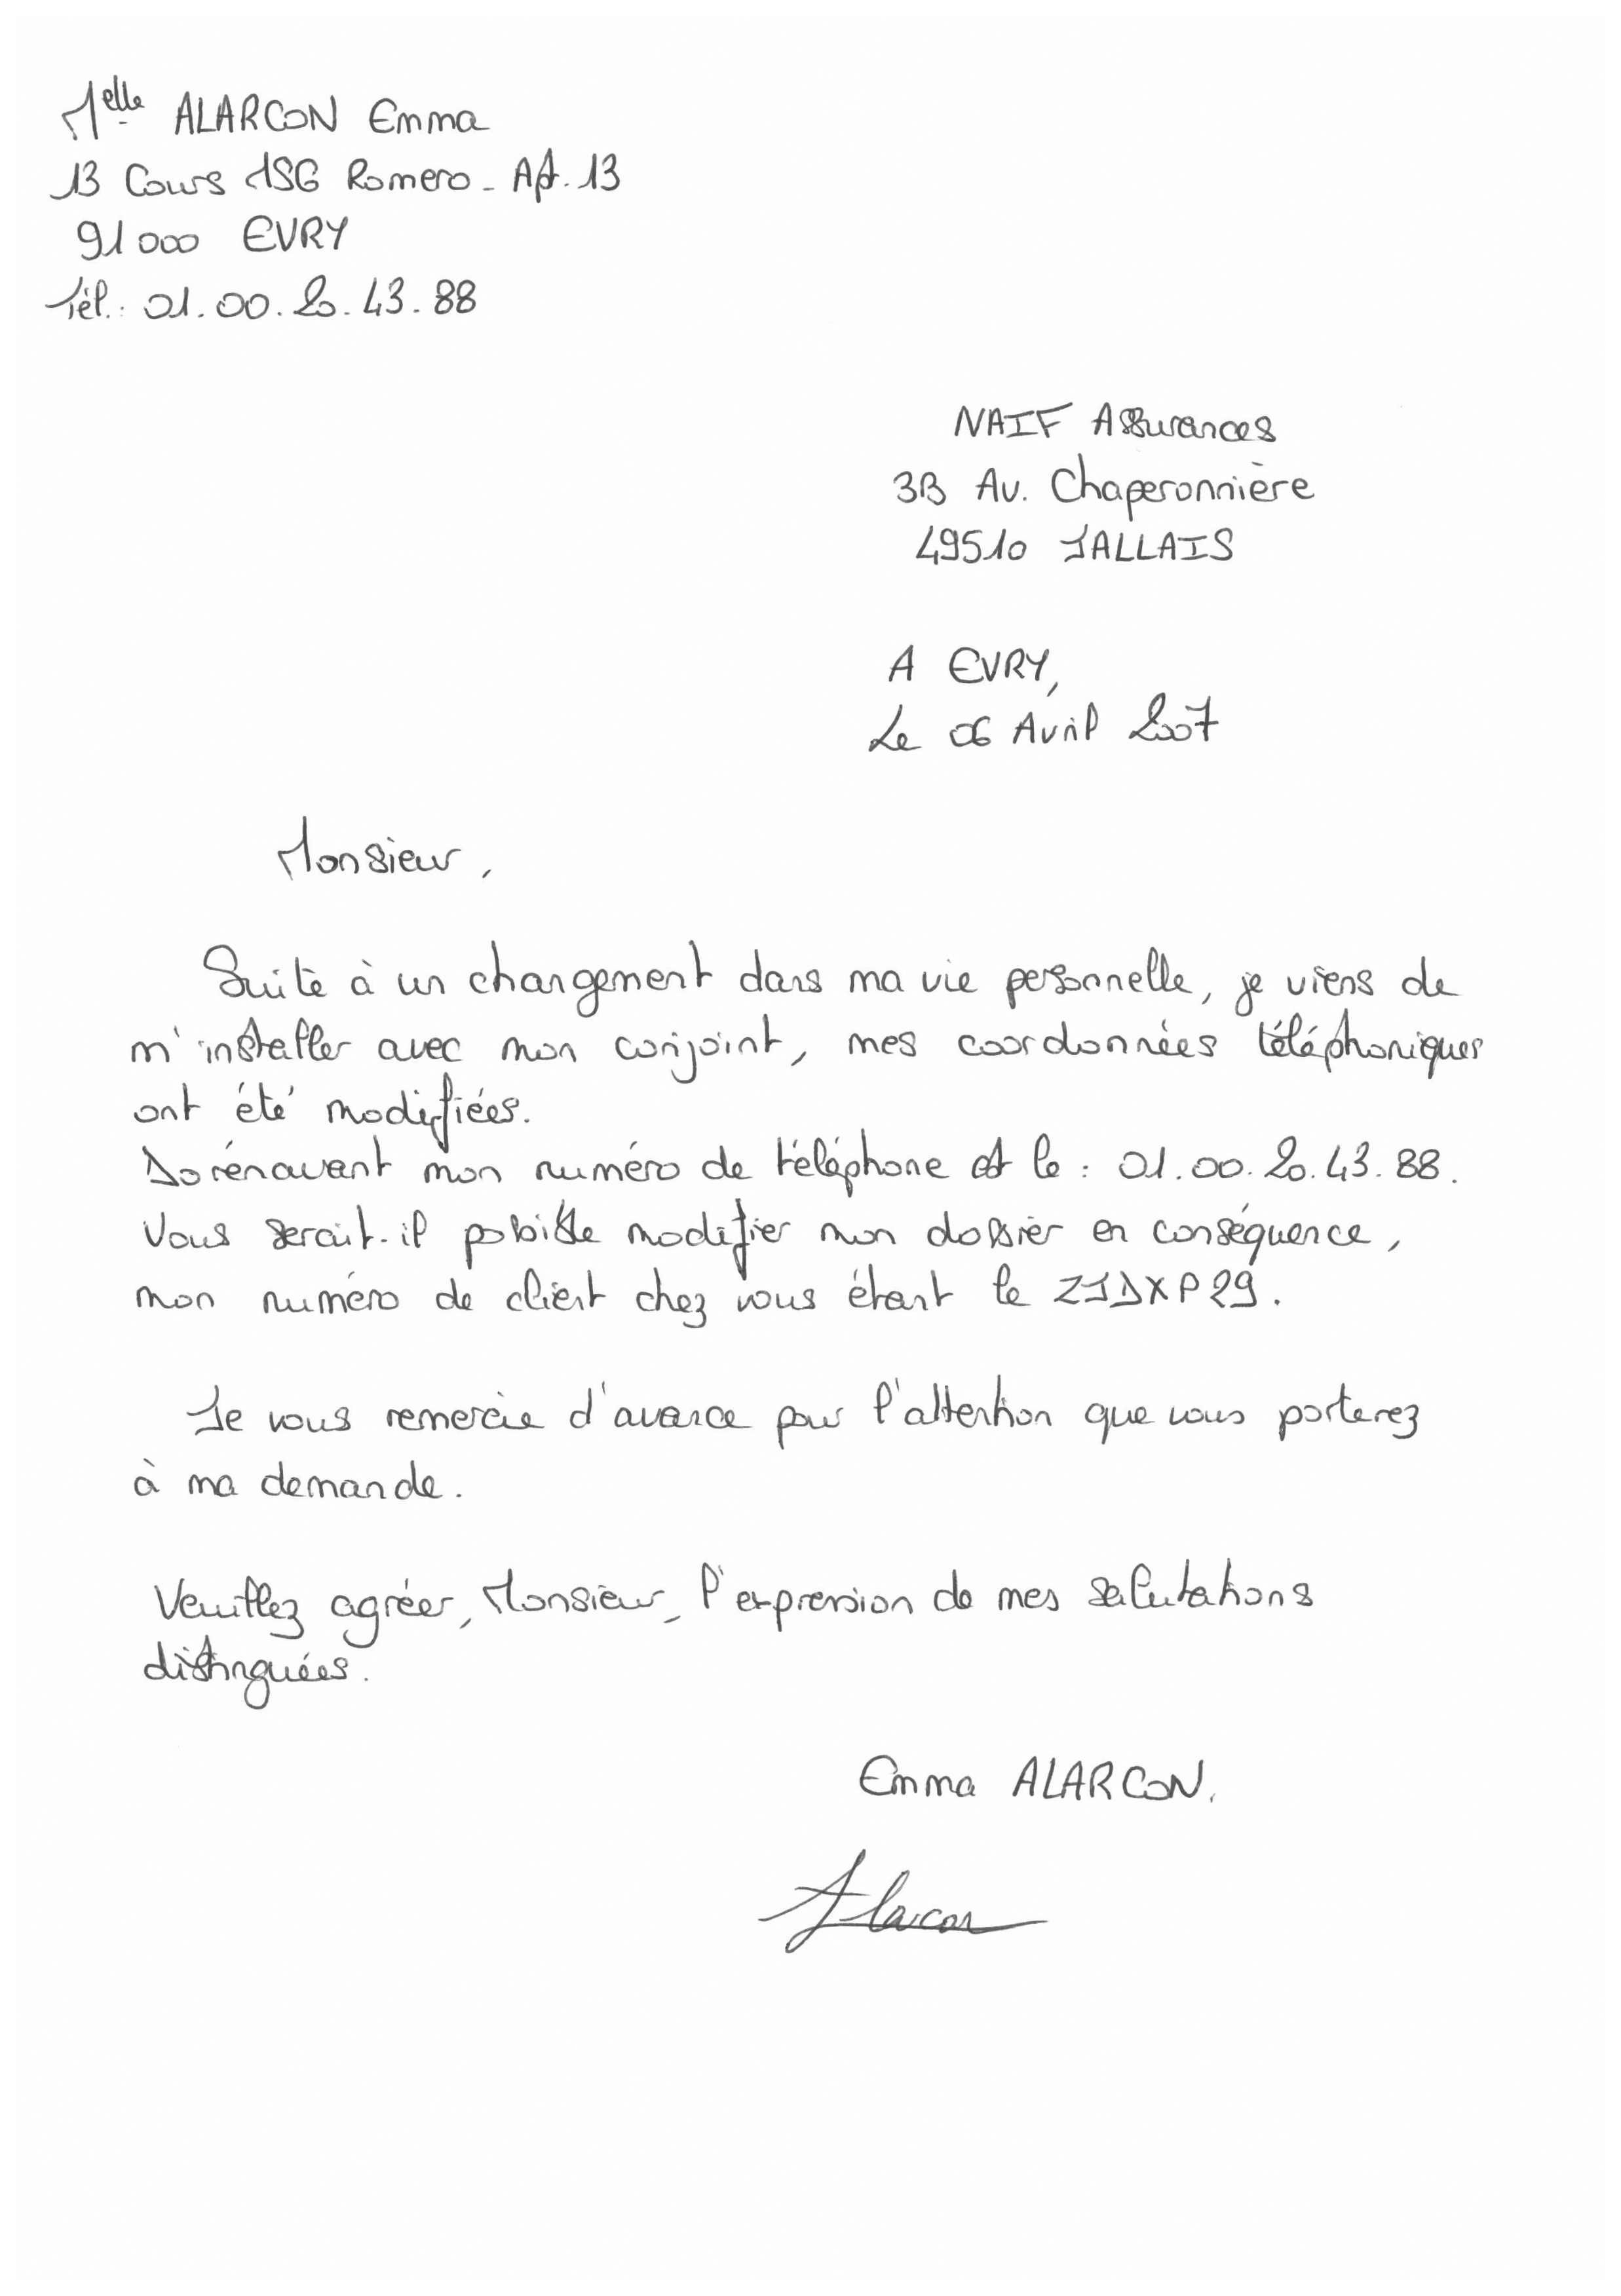 Melle ALARCON Emma
13 Cours MSG Romero - Apt. 13
91000 EVRY
Tél.: 01.00.20.43.88
NAIF Assurances
3B Av. Chaperonnière
49510 JALLAIS
A EVRY,
Le 06 Avril 2007
Monsieur,
Suite à un changement dans ma vie personnelle, je viens de
m'installer avec mon conjoint, mes coordonnées téléphoniques
ont été modifiées.
Dorénavant mon numéro de téléphone est le : 01.00.20.43.88.
Vous serait-il possible modifier mon dossier en conséquence,
mon numéro de client chez vous étant le ZJDXP29.
Je vous remercie d'avance pour l'attention que vous porterez
à ma demande.
Veuillez agréer, Monsieur, l'expression de mes salutations
distinguées.
Emma ALARCON.
Alarcon